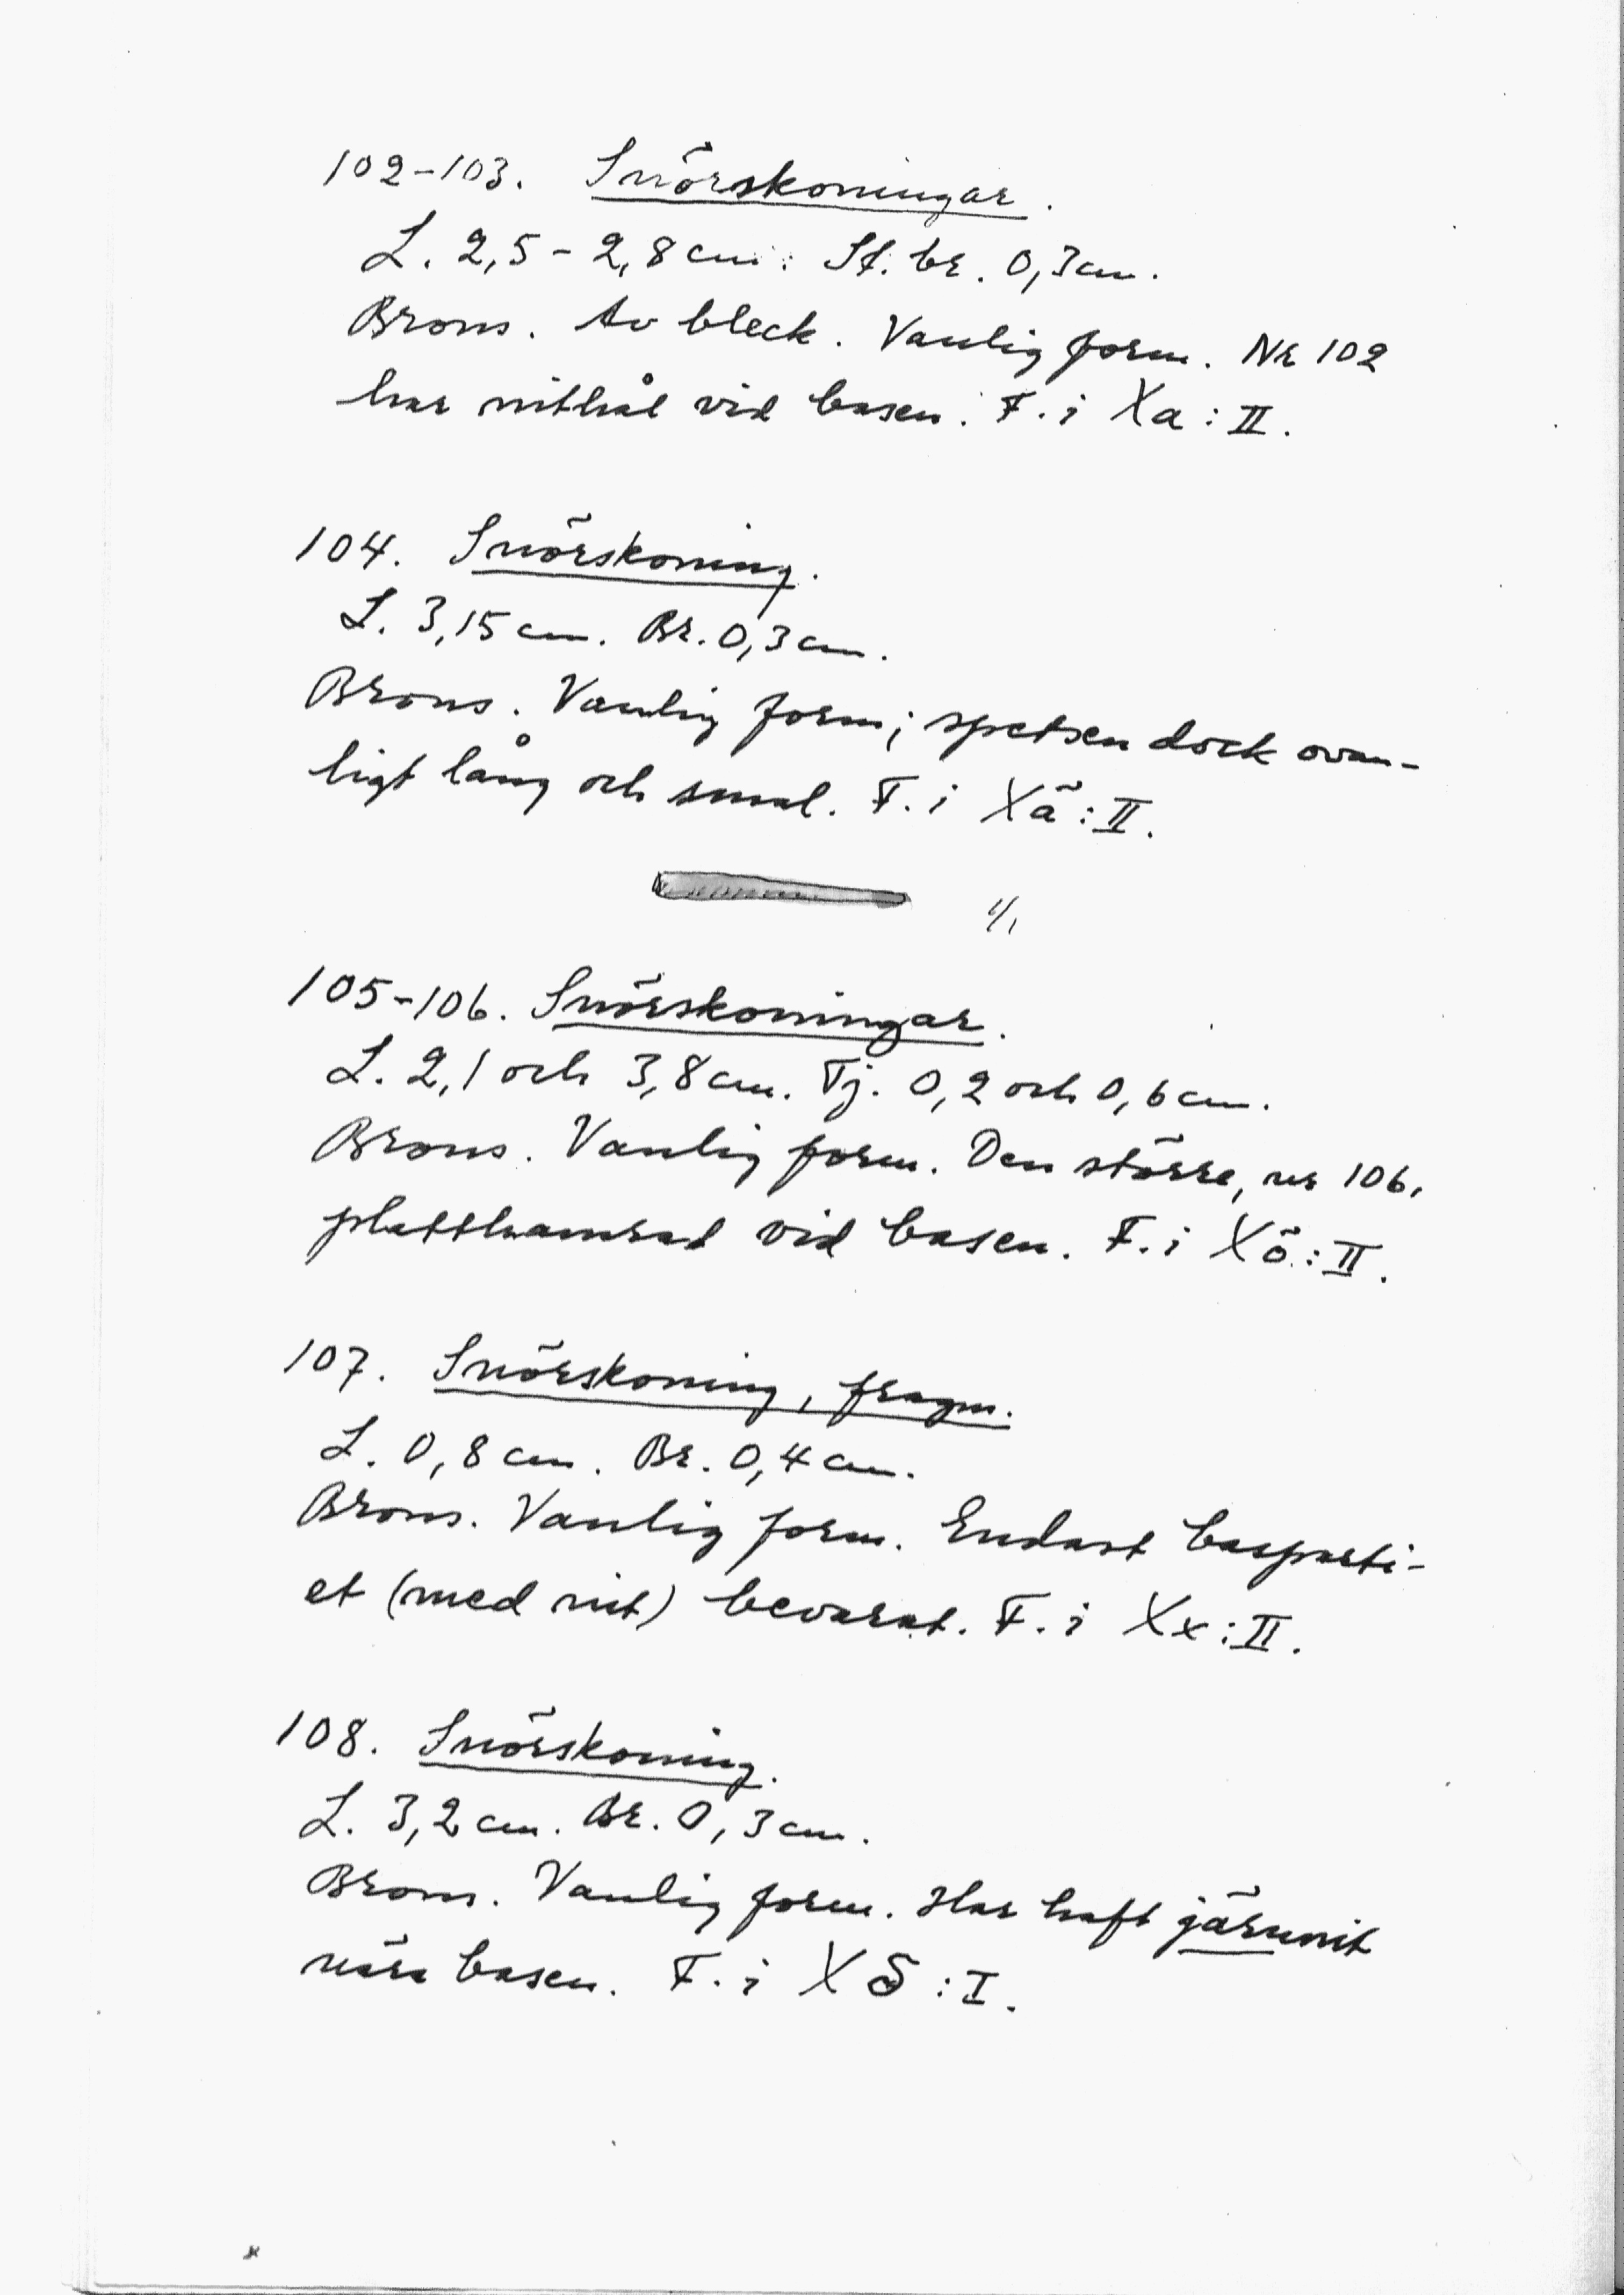 102-103. Snörskoningar.
L. 2,5 - 2,8 cm. St. br. 0,3 cm.
Brons. Av bleck. Vanlig form. Nr 102
har nithål vid basen. F. i Xa : II.
104. Snörskoning.
L. 3,15 cm. Br. 0,3 cm.
Brons. Vanlig form; spetsen dock ovan-
ligt lång och smal. F. i Xä : II.
1/1
105-106. Snörskoningar.
L. 2,1 och 3,8 cm. Tj. 0,2 och 0,6 cm.
Brons. Vanlig form. Den större, nr 106,
platthamrad vid basen. F. i Xö : II.
107. Snörskoning, fragm.
L. 0,8 cm. Br. 0,4 cm.
Brons. Vanlig form. Endast basparti-
et (med nit) bevarat. F. i Xx : II.
108. Snörskoning.
L. 3,2 cm. Br. 0,3 cm.
Brons. Vanlig form. Har haft järnnit
nära basen. F. i X S : I.